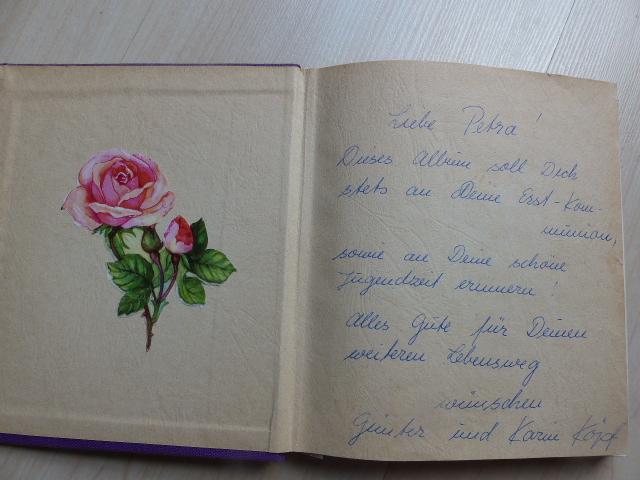 Liebe Petra!
Dieses Album soll Dich
stets an Deine Erst-Kom-
munion,
sowie an Deine schöne
Jugendzeit erinnern!
Alles Gute für Deinen
weiteren Lebensweg
wünschen
Günter und Karin